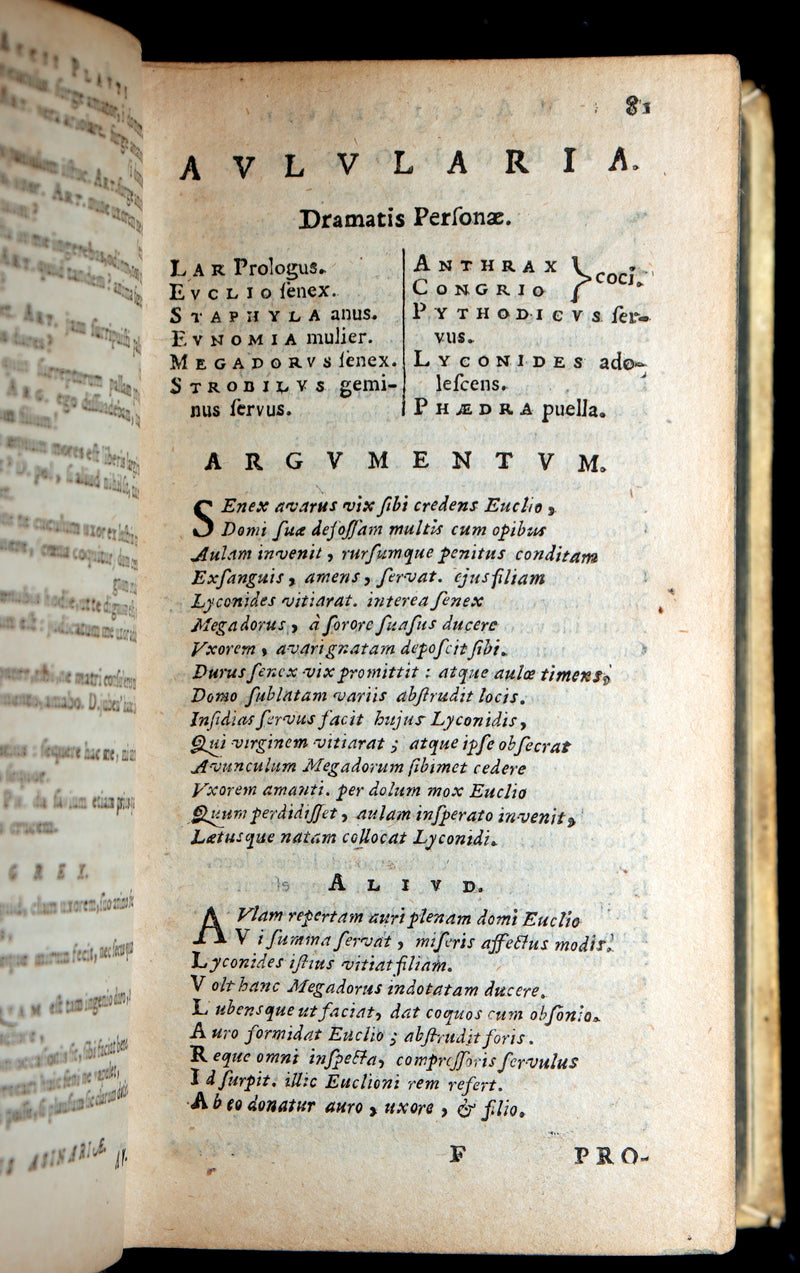 81
AVLVLARIA.
Dramatis Perſonæ.
LAR Prologus.
EVCLIO ſenex.
STAPHYLA anus.
EVNOMIA mulier.
MEGADORVS ſenex.
STROBILVS gemi-
nus ſervus.
ANTHRAX
CONGRIO } coci.
PYTHODICVS ſer-
vus.
LYCONIDES ado-
leſcens.
PHÆDRA puella.
ARGVMENTVM.
SEnex avarus vix ſibi credens Euclio,
Domi ſuæ defoſſam multis cum opibus
Aulam invenit, rurſumque penitus conditam
Exſanguis, amens, ſervat. ejus filiam
Lyconides vitiarat. interea ſenex
Megadorus, à ſorore ſuaſus ducere
Vxorem, avari gnatam depoſcit ſibi.
Durus ſenex vix promittit: atque aulæ timens,
Domo ſublatam variis abſtrudit locis.
Inſidias ſervus facit hujus Lyconidis,
Qui virginem vitiarat; atque ipſe obſecrat
Avunculum Megadorum ſibimet cedere
Vxorem amanti. per dolum mox Euclio
Quum perdidiſſet, aulam inſperato invenit,
Lætusque natam collocat Lyconidi.
ALIVD.
AVlam repertam auri plenam domi Euclio
V i ſumma ſervat, miſeris affectus modis.
Lyconides iſtius vitiat filiam.
V olt hanc Megadorus indotatam ducere.
L ubensque ut faciat, dat coquos cum obſonio.
A uro formidat Euclio; abſtrudit foris.
R eque omni inſpecta, compreſſoris ſervulus
I d ſurpit. illic Euclioni rem refert.
A b eo donatur auro, uxore, & filio.
F PRO-